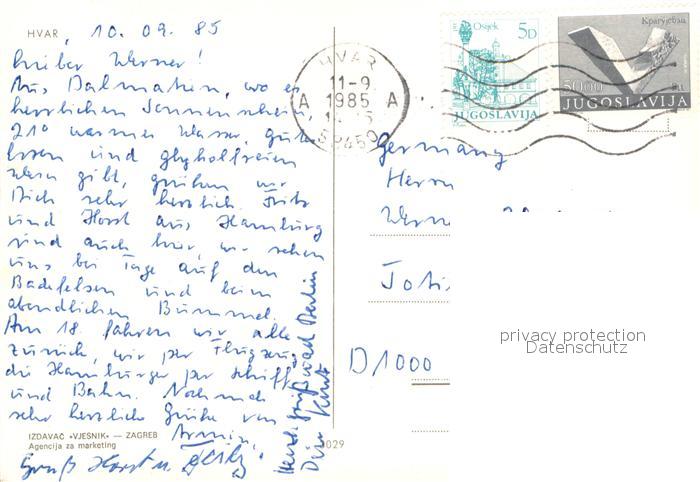 HVAR, 10.09.85
Lieber Werner!
Aus Dalmatien, wo es
herrlichen Sonnenschein,
21° warmes Wasser, gutes
Essen und glykolfreien
Wein gibt, grüßen wir
Dich sehr herzlich. Fritz
und Horst aus Hamburg
sind auch hier, wir sehen
uns bei Tage auf den
Badefelsen und beim
abendlichen Bummel.
Am 18. fahren wir alle
zurück, wir per Flugzeug,
die Hamburger per Schiff
und Bahn. Nochmals
sehr herzliche Grüße von
Armin,
Gruß Horst u.
Berlin
Dein Kurt
IZDAVAČ «VJESNIK» — ZAGREB
Agencija za marketing
029
HVAR
11-9
A 1985 A
58450
Osjek
5D
JUGOSLAVIJA
Крагујевац
50.00
JUGOSLAVIJA
Germany
Herrn
Werne
D 1000
privacy protection
Datenschutz